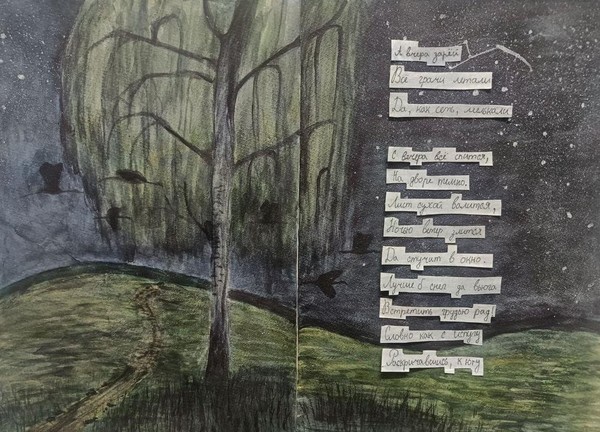 А вчера зарёй
Всё грачи летали
Да, как сеть, мелькали
С вечера всё спится,
На дворе темно.
Лист сухой валится,
Ночью ветер злится
Да стучит в окно.
Лучше б снег да вьюга
Встретить грудью рад!
Словно как с испугу
Раскричавшись, к югу